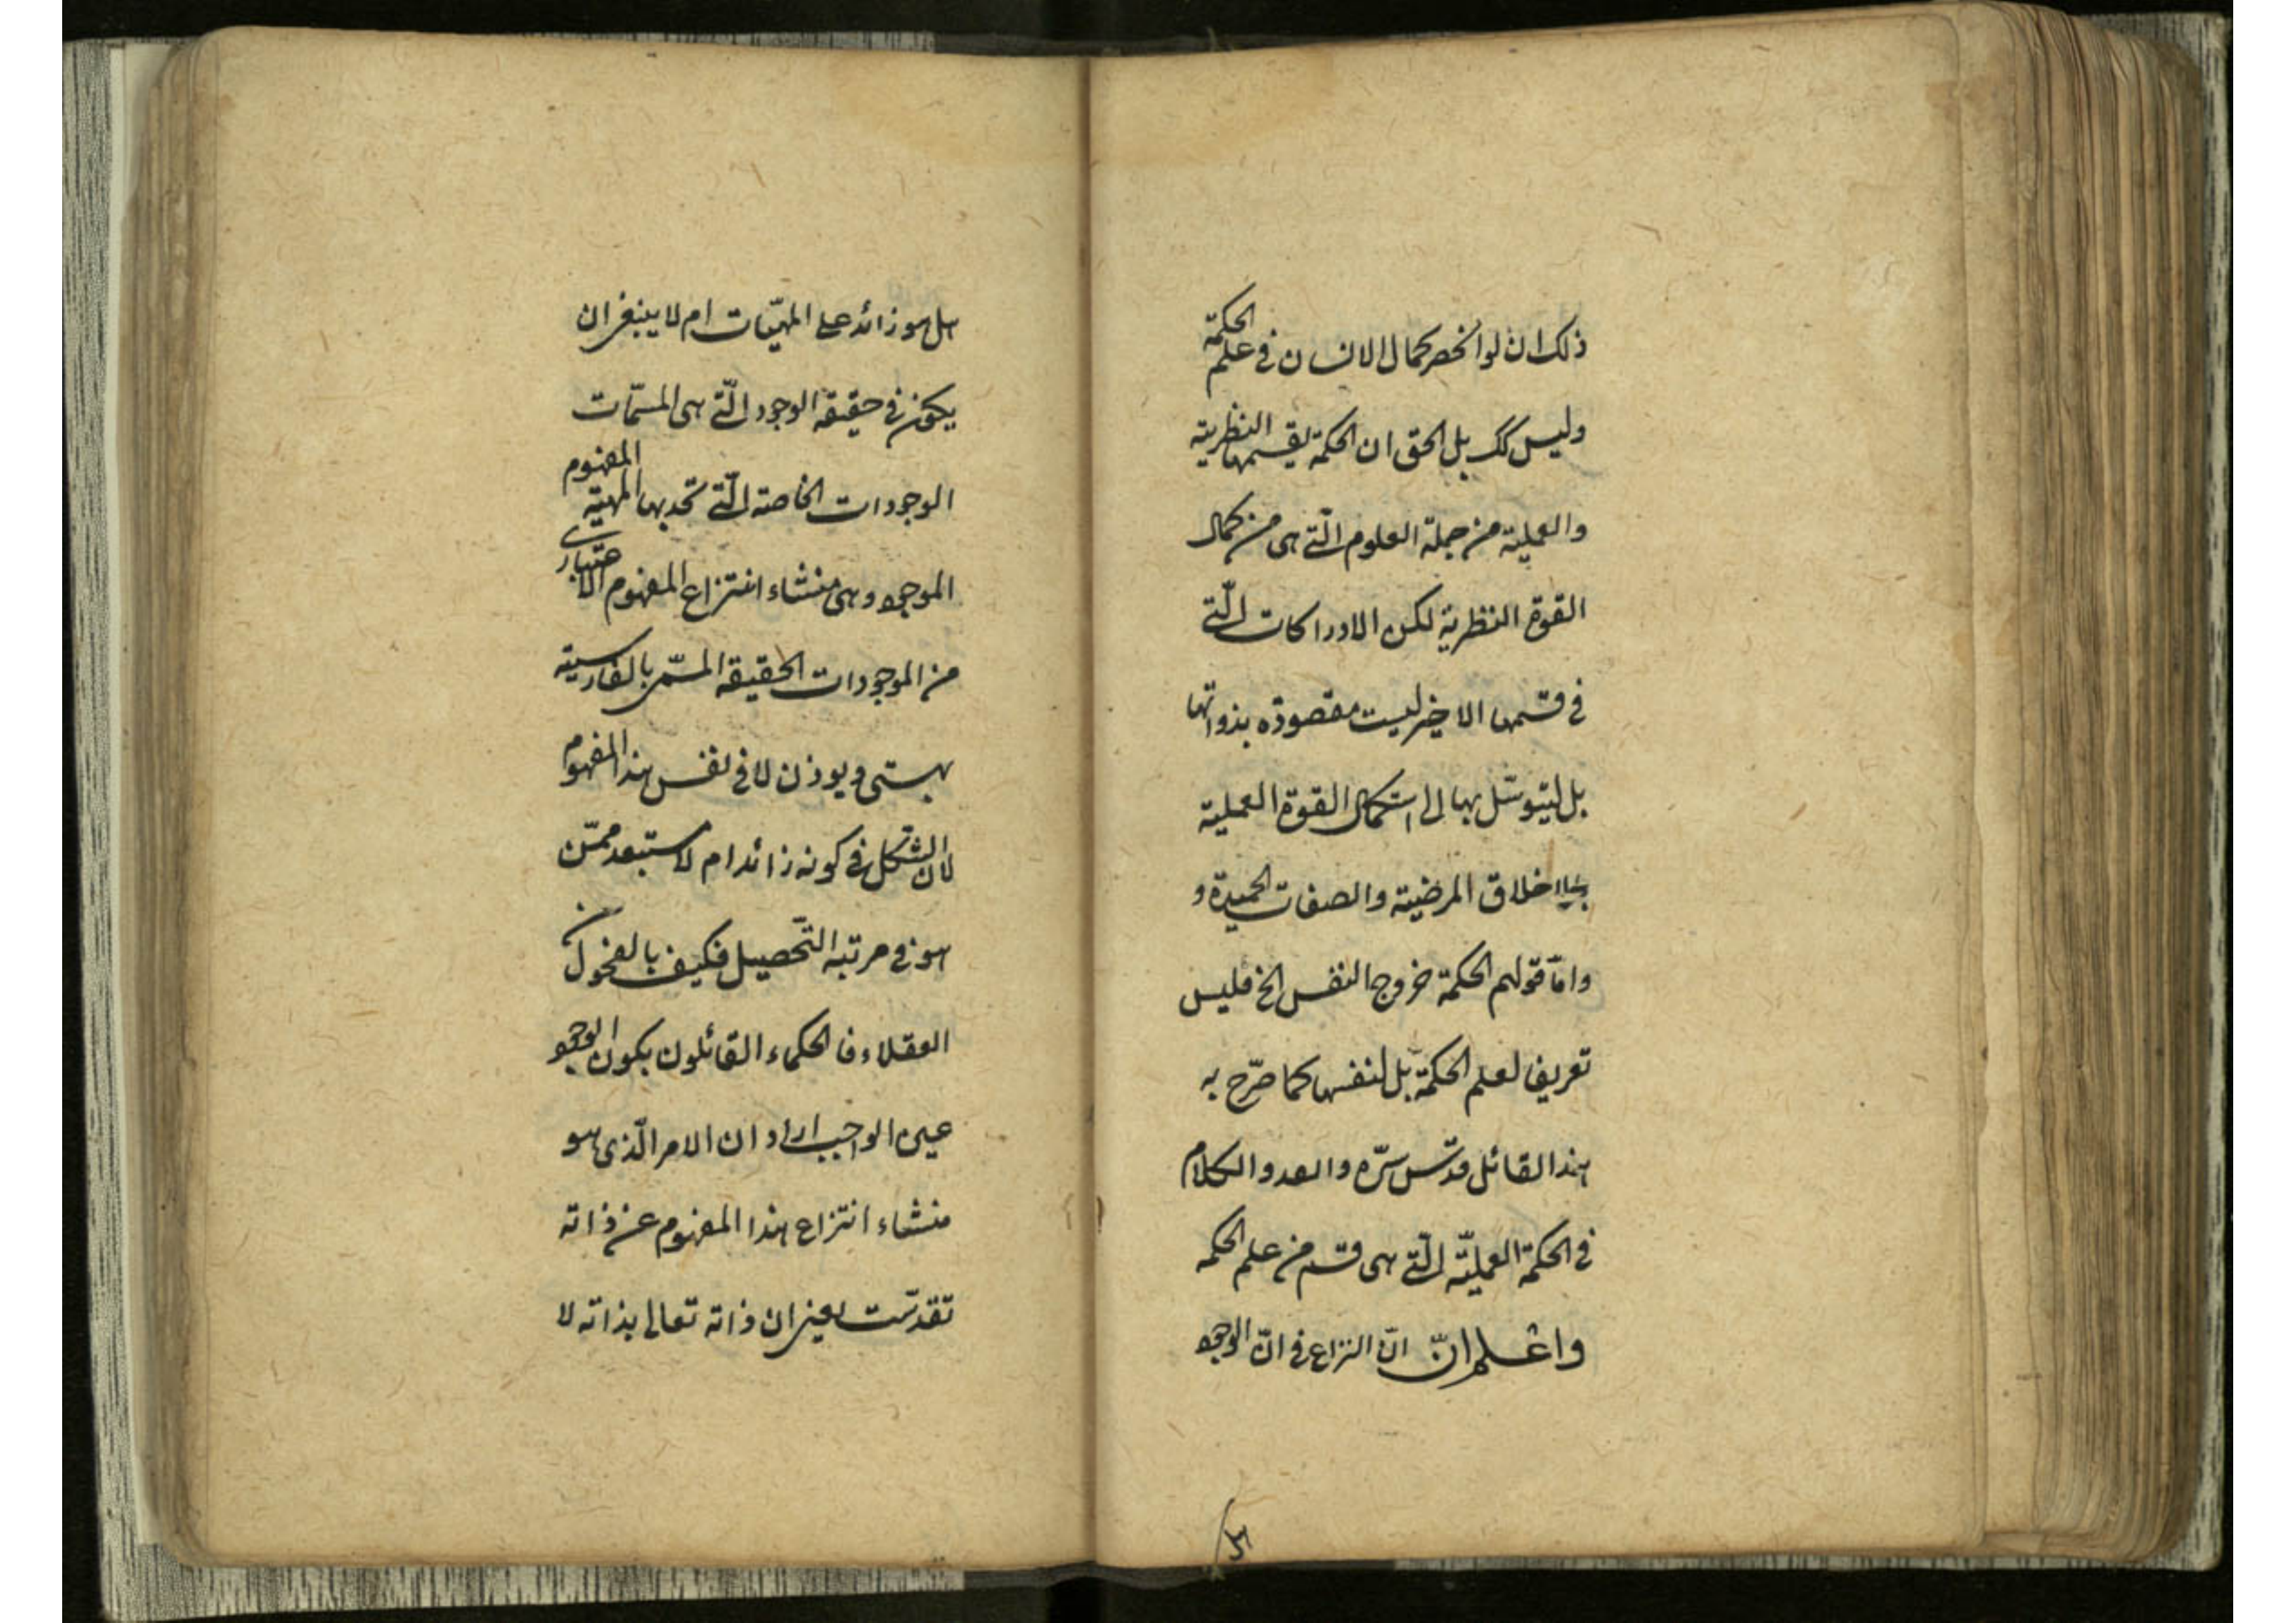 ذلك ان لو انحصر كمال الانسان في علم الحكمة
وليس كك بل الحق ان الحكمة بقسميها النظرية
والعملية من جملة العلوم الّتي هي من كمال
القوة النظرية لكن الادراكات الّتي
في قسمها الاخير ليست مقصودة بذواتها
بل ليتوسّل بها الى استكمال القوة العملية
بالاخلاق المرضية والصفات الحميدة و
وامّا قولهم الحكمة خروج النفس الخ فليس
تعريفا لعلم الحكمة بل لنفسها كما صرّح به
هذا القائل قدّس سرّه والكلام
في الحكمة العمليّة الّتي هي قسم من علم الحكمه
واعلم انّ انّ النزاع في انّ الوجود
هل هو زائد على المهيّات ام لا ينبغي ان
يكون في حقيقة الوجود الّتي هي المسمّات
الوجودات الخاصة الّتي تحد بها المهية المفهوم
الموجود وهي منشاء انتزاع المفهوم الاعتباري
من الموجودات الحقيقة المسمّى بالفارسية
بهستى وبودن لا في نفس هذا المفهوم
لان الشك في كونه زائدا ام لا مستبعد ممّن
هو في مرتبة التّحصيل فكيف بالفحول من
العقلاء فالحكماء القائلون بكون الوجود
عين الواجب ارادوا ان الامر الّذي هو
منشاء انتزاع هذا المفهوم عن ذاته
تقدّست يعني ان ذاته تعالى بذاته لا